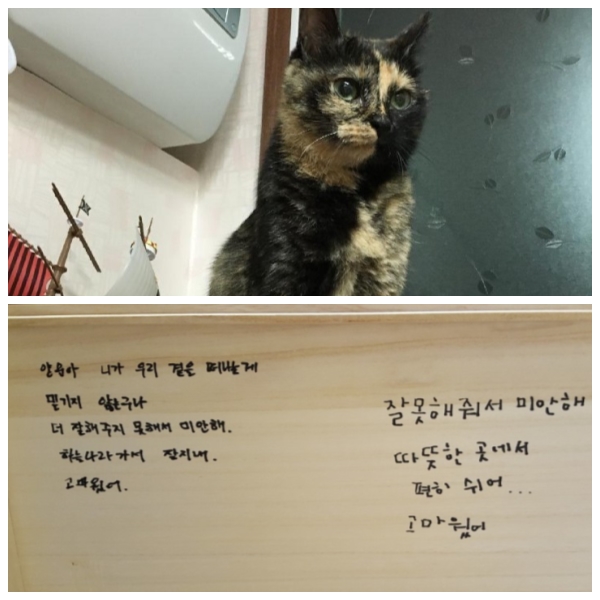 니가 우리 곁을 떠났는게
믿기지 않는구나
더 잘해주지 못해서 미안해.
하늘나라 가서 잘지내.
고마웠어.
잘못해줘서 미안해
따뜻한 곳에서
편히 쉬어...
고마웠어